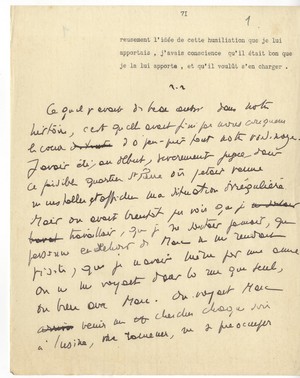 71
1
reusement l'idée de cette humiliation que je lui
apportais, j'avais conscience qu'il était bon que
je la lui apporte, et qu'il voulût s'en charger.
Ce qu'il y avait de beau aussi dans notre
histoire, c'est qu'elle avait fini par nous
le coeur d'à peu près tout notre voisinage.
J'avais été, au début, sévèrement jugée dans
ce paisible quartier où j'étais venue
m'installer et afficher ma situation irrégulière
Mais on avait bientôt pu voir que je
travaillais, que je ne sortais jamais, que
personne en dehors de Marc ne me rendait
visite, que je n'avais même pas une amie
On ne me voyait dans la rue que seule,
ou bien avec Marc. On voyait Marc
venir me chercher chaque soir
à l'usine, me ramener, me